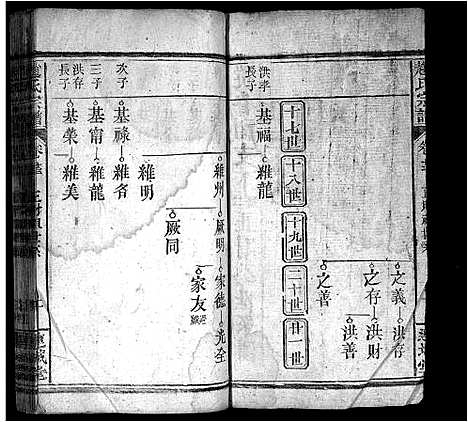 之義 洪存
之存 洪財
洪善
之善
十七世
十八世
十九世
二十世
廿一世
洪孝
長子
基福 維龍
維州 厥明 家德 光全
家友
厥同
維明
次子
基祿 維名
三子
基甯 維龍
洪存
長子
基榮 維美
氏宗譜